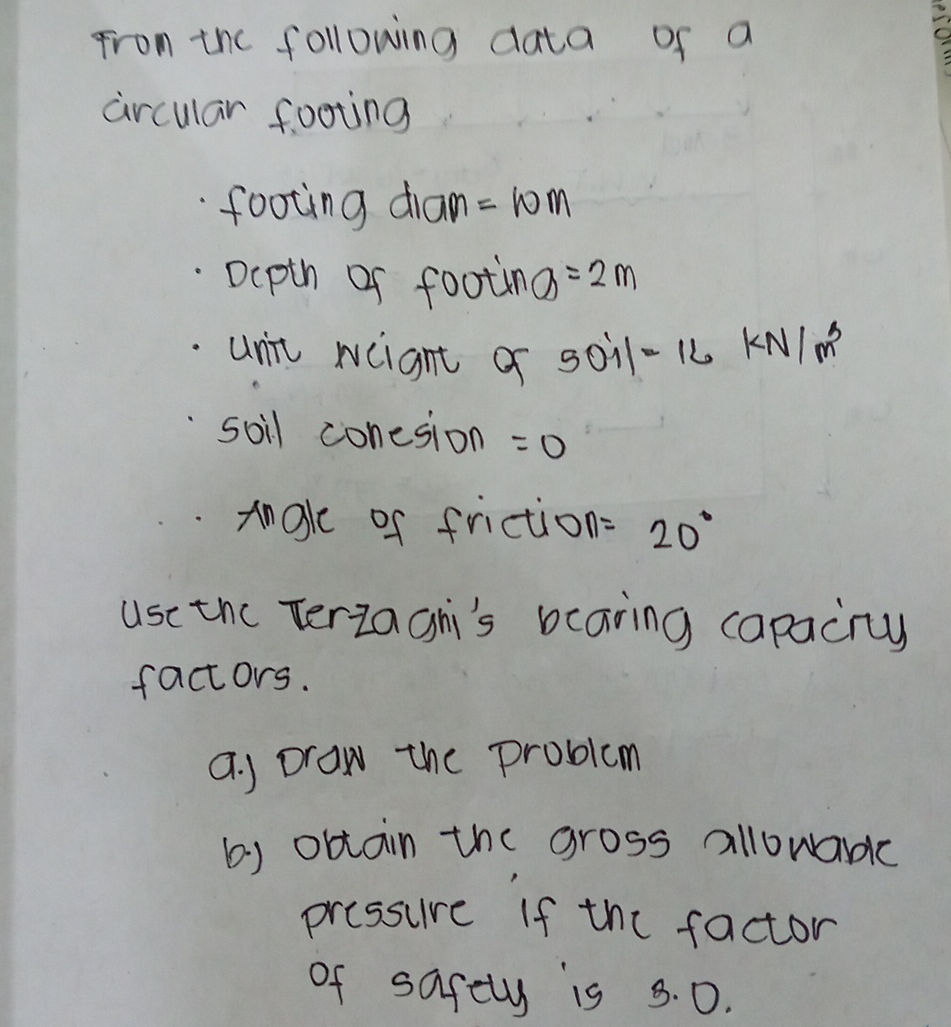 From the following data of a
circular footing
· footing diam = 10m
· Depth of footing = 2m
· unit weight of soil = 16 KN/m³
· soil cohesion = 0
· Angle of friction = 20°
Use the Terzaghi's bearing capacity
factors.
a.) Draw the problem
b.) Obtain the gross allowable
pressure if the factor
of safety is 3.0.